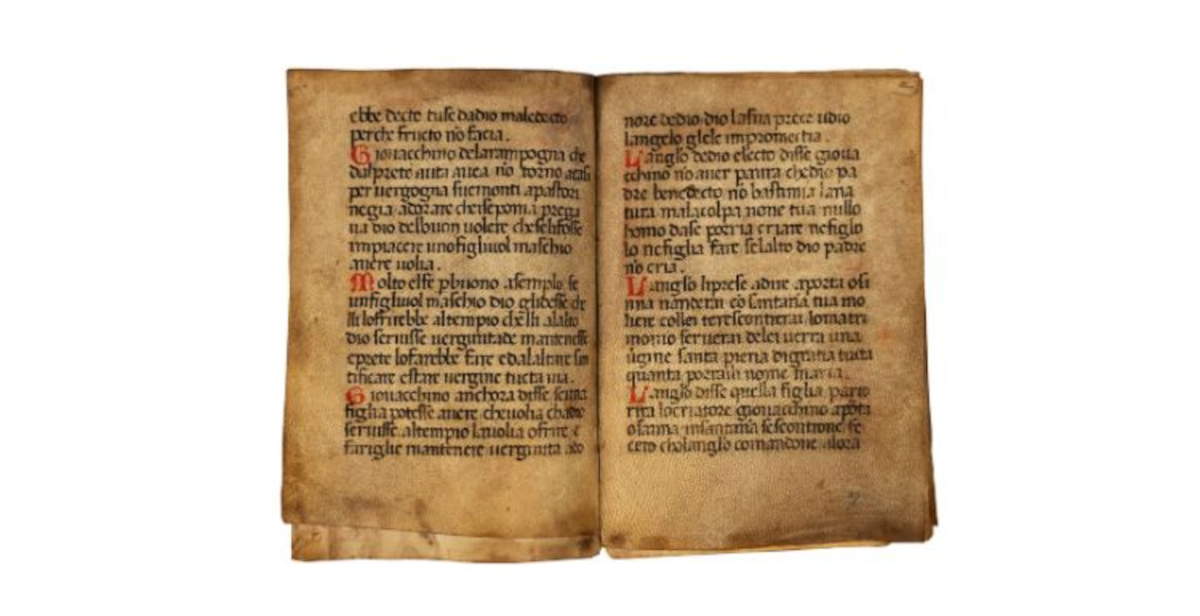 ebbe decto tu se dadio maledecto
perche fructo nō facia.
Giouacchino delarampogna che
dalprete auta auea nō torno acasa
per uergogna fue monti apastori
negia adorare cheiseponia prega
ua dio delbuon uolere cheselifosse
impiacere unofigluiol maschio
auere uolia.
Molto else p̄buono asemplo se
unfigluiol maschio dio glidesse che
lli loffrirebbe altempio chelli alalto
dio seruisse uerginitade mantenesse
eprete lofarebbe fare edalaltare san
tificare estare uergine tucta uia.
Giouacchino anchora disse seuna
figlia potesse auere cheuolia chadio
seruisse altempio lauolia ofrire e
fariglie mantenere uerginita ado
nore dedio dio lasua prece udio
langelo glele impromectia.
Langlo dedio electo disse gioua
cchino nō auer paura chedio pa
dre benedecto nō bastimia lana
tura malacolpa none tua nullo
homo dase poria criare nefiglo
lo nefiglia fare selalto dio padre
nō cria.
Langlo liprese adire aporta osi
nna nanderai cō santana tua mo
liere collei terescontrerai lomatri
monio seruerai delei uerra una
uīgine santa piena digratia tucta
quanta porrali nome maria.
Langlo disse quella figlia parto
rira locriatore giouacchino apōta
osanna insantana sescontrone se
ceto cholanglo comandone alora